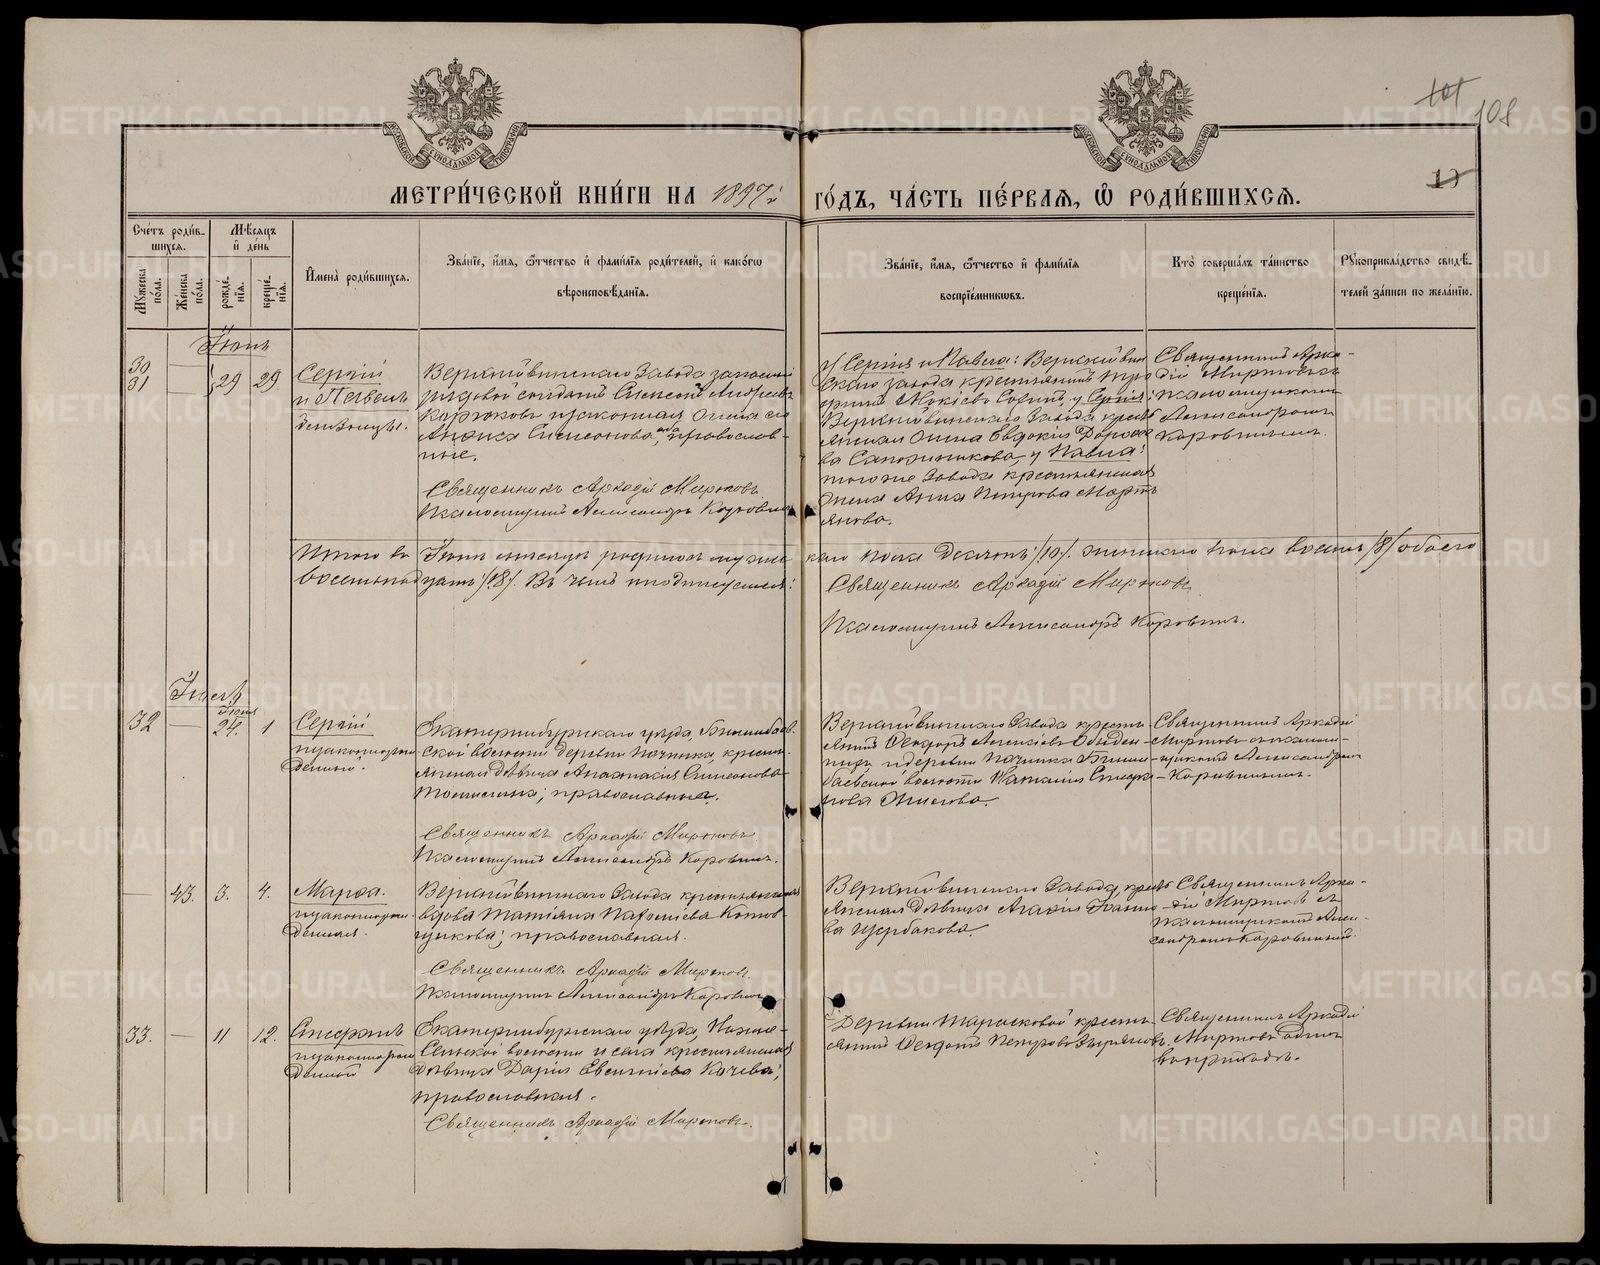 101
108
13
МЕТРИ́ЧЕСКОЙ КНИ́ГИ НА 1897й ГО́ДЪ, ЧА́СТЬ ПЕ́РВАѦ, Ѡ҆ РОДИ́ВШИХСѦ.
Сче́тъ роди́в-
шихсѧ.
Мѣ́сѧцъ
и҆ де́нь
Мꙋ́жеска
по́ла.
Же́нска
по́ла.
рожде́-
нїѧ.
креще́-
нїѧ.
И҆мена̀ роди́вшихсѧ.
Зва́нїе, и҆́мѧ, ѻ҆́тчество и҆ фами́лїѧ роди́телей, и҆ како́гѡ
вѣроисповѣ́данїѧ.
Зва́нїе, и҆́мѧ, ѻ҆́тчество и҆ фами́лїѧ
воспрїе́мникѡвъ.
Кто̀ соверша́лъ та́инство
креще́нїѧ.
Рꙋкоприкла́дство свидѣ́-
телей за́писи по жела́нїю.
Іюнь
30
31
29
29
Сергій
и Павелъ
близнецы.
Верхнейвинскаго Завода запасный
рядовой солдатъ Алексей Андреевъ
и законная жена его
Анфиса Симеонова, оба православ-
ные.
Священникъ Аркадій Мироновъ
Псаломщикъ Александръ Коровинъ
у Сергія и Павла: Верхнейвин
скаго завода крестьянинъ
у Сергія:
Верхнейвинскаго Завода кресть
янская жена Евдокія
ва Сапожникова, у Павла:
того же Завода крестьянская
жена Анна Петрова Марть
янова.
Священникъ Арка-
дій Мироновъ съ
псаломщикомъ
Александромъ
Коровинымъ.
Итого въ Іюнѣ месяцѣ родилось мужес каго пола десять /10/, женскаго пола восемь /8/ обоего
восемнадцать /18/. Въ чемъ и подписуемся:
Священникъ Аркадій Мироновъ
Псаломщикъ Александръ Коровинъ.
Іюль
Іюня
32
24.
1
Сергій
незаконнорож-
денный.
Екатеринбургскаго уѣзда, Билимбаев
ской волости деревни Починка, кресть-
янская дѣвица Анастасія Симеонова
православные.
Священникъ Аркадій Мироновъ
Псаломщикъ Александръ Коровинъ.
Верхнейвинскаго Завода кресть
янинъ Феодоръ Алексіевъ Обыден-
ныхъ и деревни Починка Билим-
баевской волости Наталія Стефа-
нова
Священникъ Аркадій
Мироновъ съ псалом-
щикомъ Александромъ
Коровинымъ.
43.
3.
4.
Марѳа.
незаконнорож-
денная.
Верхнейвинскаго Завода крестьянская
вдова Татіана
православная.
Священникъ Аркадій Мироновъ
Псаломщикъ Александръ Коровинъ
Верхнейвинскаго Завода, кресть
янская дѣвица Агафія Іоанно-
ва Щербакова.
Священникъ Арка-
дій Мироновъ съ
псаломщикомъ Алек-
сандромъ Коровинымъ.
33.
11
12.
Стефанъ
незаконнорож
денный
Екатеринбургскаго уѣзда, Нижне-
Сельской волости и села крестьянская
дѣвица Дарія Евгеніева
православная.
Священникъ Аркадій Мироновъ.
Деревни Тарасковой кресть-
янинъ Феофанъ Петровъ Зыряновъ.
Священникъ Аркадій
Мироновъ одинъ